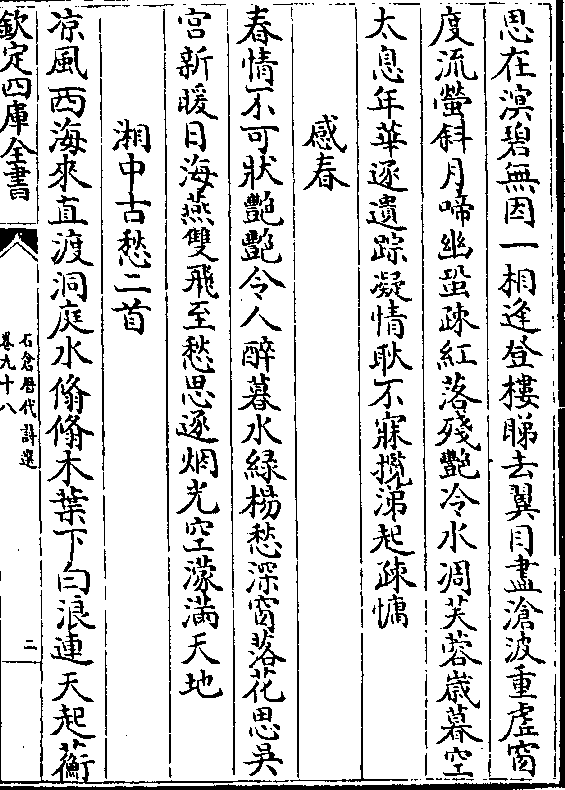 思在溟碧無因一相逢登樓睇去翼目盡滄波重虛窗
度流螢斜月啼幽蛩疎紅落殘艷冷水凋芙蓉歲暮空
太息年華逐遺踪凝情耿不寐攬涕起疎慵
感春
春情不可狀艷艷令人醉暮水綠楊愁深窗落花思吳
宮新暖日海燕雙飛至愁思逐烟光空濛滿天地
湘中古愁二首
凉風西海來直渡洞庭水翛翛木葉下白浪連天起蘅
欽定四庫全書
石倉歷代詩選
卷九十八
二